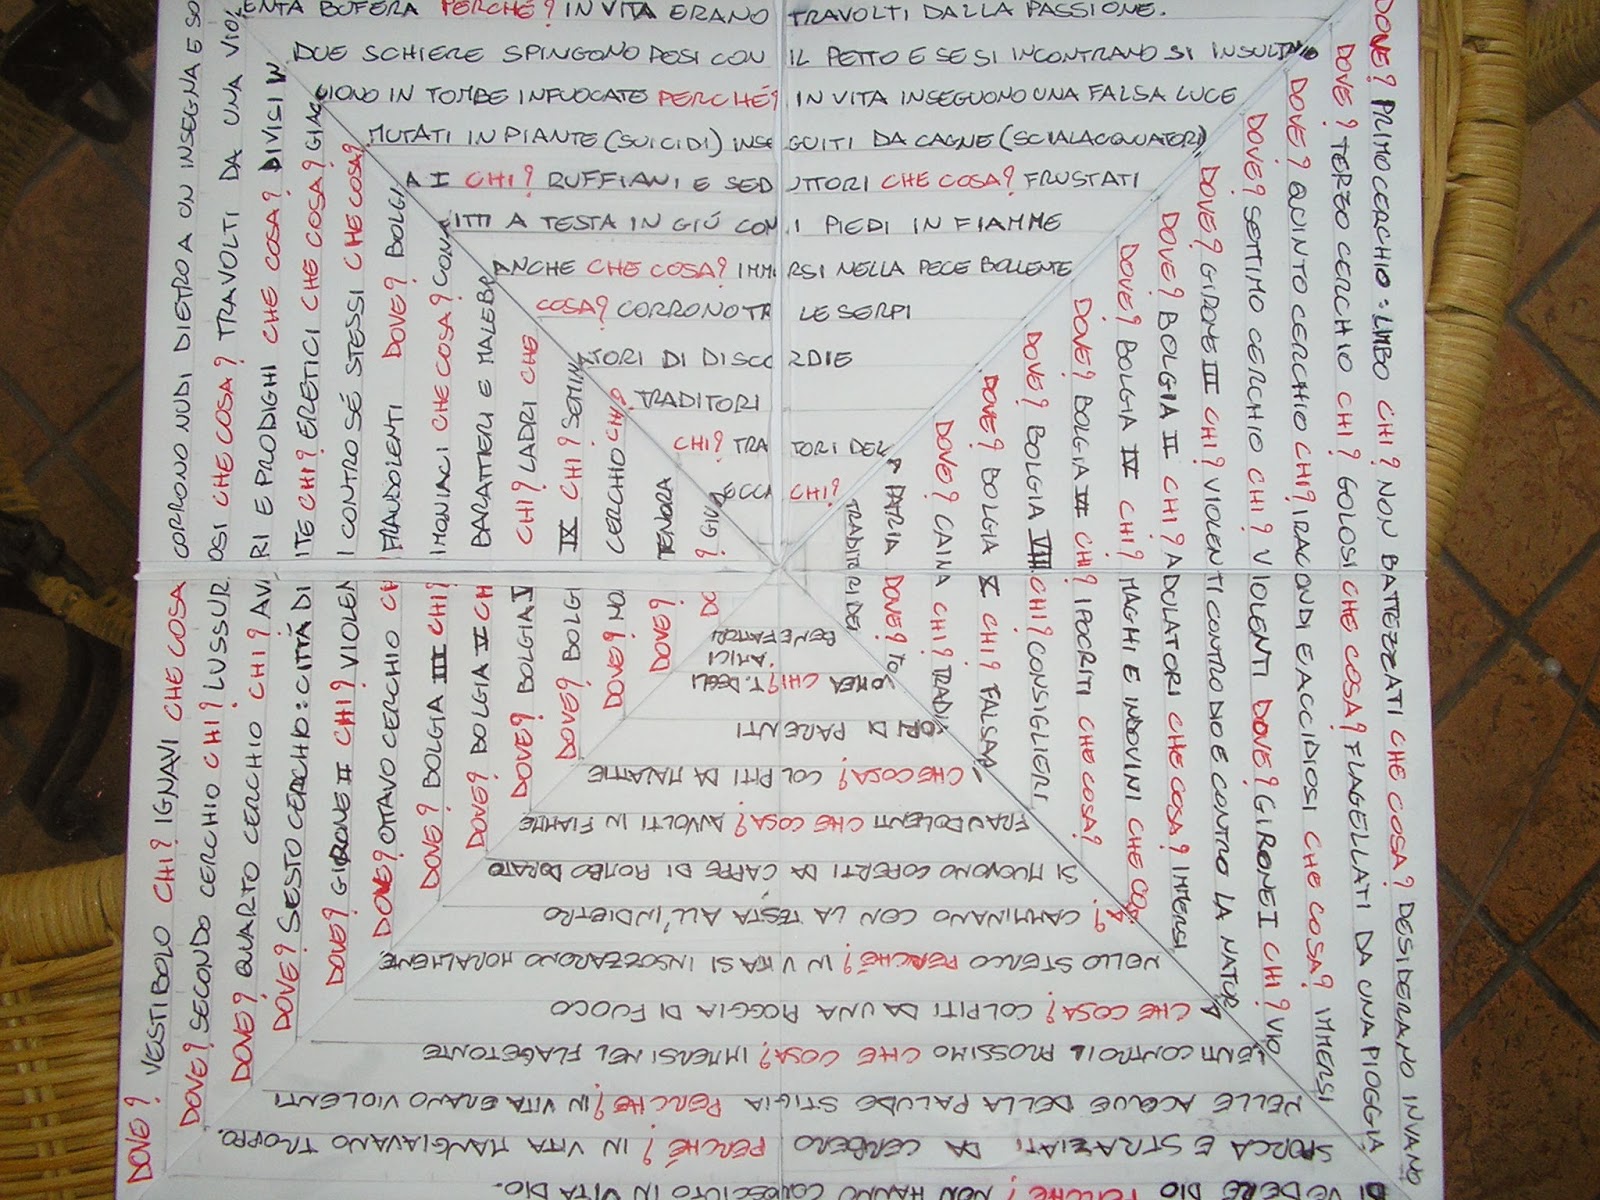 DOVE? VESTIBOLO CHI? IGNAVI CHE COSA CORRONO NUDI DIETRO A UN INSEGNA E SO
DOVE? SECONDO CERCHIO CHI? LUSSUROSI CHE COSA? TRAVOLTI DA UNA VIOL
DOVE? QUARTO CERCHIO CHI? AVARI E PRODIGHI CHE COSA? DIVISI IN
DOVE? SESTO CERCHIO: CITTÁ DI ITE CHI? ERETICI CHE COSA? GIAC
DOVE? GIRONE II CHI? VIOLEN I CONTRO SÉ STESSI CHE COSA?
DOVE? OTTAVO CERCHIO CH FRAUDOLENTI DOVE? BOLGI
DOVE? BOLGIA III CHI? IMONIACI CHE COSA? CON
DOVE? BOLGIA V CH BARATTIERI E MALEBR
DOVE? BOLGIA V CHI? LADRI CHE
DOVE? BOLGI IX CHI? SEMIN
DOVE? NO CERCHIO CHI?
DOVE? TENORA
DO ? GIU
ENTA BUFERA PERCHÉ? IN VITA ERANO TRAVOLTI DALLA PASSIONE.
DUE SCHIERE SPINGONO PESI CON IL PETTO E SE SI INCONTRANO SI INSULTANO
CIONO IN TOMBE INFUOCATE PERCHÉ? IN VITA INSEGUONO UNA FALSA LUCE
MUTATI IN PIANTE (SUICIDI) INSEGUITI DA CAGNE (SCIALACQUATORI)
A I CHI? RUFFIANI E SEDUTTORI CHE COSA? FRUSTATI
ITTI A TESTA IN GIÚ CON I PIEDI IN FIAMME
ANCHE CHE COSA? IMMERSI NELLA PECE BOLLENTE
COSA? CORRONO TRA LE SERPI
ATORI DI DISCORDIE
TRADITORI
CHI? TRA TORI DELL
ECCA CHI?
DOVE? PRIMO CERCHIO: LIMBO CHI? NON BATTEZZATI CHE COSA? DESIDERANO INVANO
DOVE? TERZO CERCHIO CHI? GOLOSI CHE COSA? FLAGELLATI DA UNA PIOGGIA
DOVE? QUINTO CERCHIO CHI? IRACONDI E ACCIDIOSI CHE COSA? IMMERSI
DOVE? SETTIMO CERCHIO CHI? VIOLENTI DOVE? GIRONE I CHI? VIO
DOVE? GIRONE III CHI? VIOLENTI CONTRO DIO E CONTRO LA NATUR
DOVE? BOLGIA II CHI? ADULATORI CHE COSA? IMMERSI
DOVE? BOLGIA IV CHI? MAGHI E INDOVINI CHE COS
DOVE? BOLGIA VI CHI? IPOCRITI CHE COSA?
DOVE? BOLGIA VIII CHI? CONSIGLIERI
DOVE? BOLGIA X CHI? FALSAR
DOVE? CAINA CHI? TRADI
A PATRIA DOVE? TO
TRADITORI DEI
DI VEDERE DIO PERCHÉ? NON HANNO CONOSCIUTO IN VITA DIO.
SPORCA E STRAZIATI DA CERBERO PERCHÉ? IN VITA MANGIAVANO TROPPO.
NELLE ACQUE DELLA PALUDE STIGIA PERCHÉ? IN VITA ERANO VIOLENTI
LENTI CONTRO IL PROSSIMO CHE COSA? IMMERSI NEL FLAGETONTE
A CHE COSA? COLPITI DA UNA PIOGGIA DI FUOCO
NELLO STERCO PERCHÉ? IN VITA SI INSOZZARONO MORALMENTE
A? CAMMINANO CON LA TESTA ALL'INDIETRO
SI MUOVONO COPERTI DA CAPPE DI PIOMBO DORATO
FRAUDOLENTI CHE COSA? AVVOLTI IN FIAMME
I CHE COSA? COLPITI DA MALATTIE
TORI DI PARENTI
LOMEA CHI? T. DEGLI AMICI
BENEFATTORI